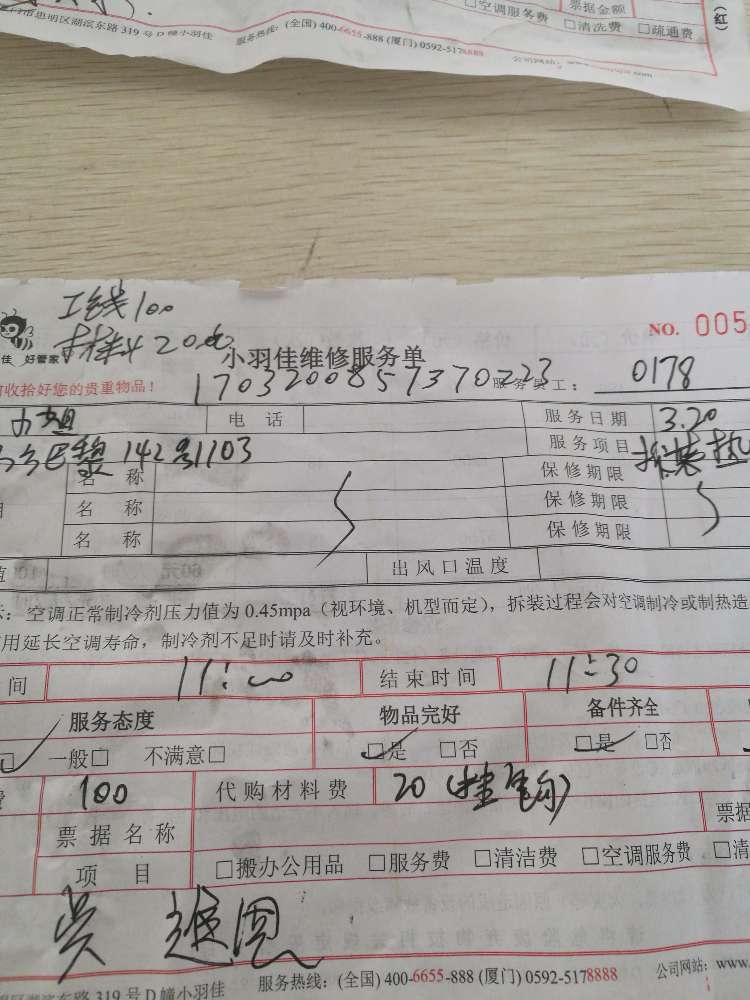 □空调服务费 票据金额
□清洗费 □疏通费
(红)
门市思明区湖滨东路 319 号 D 幢小羽佳 服务热线: (全国) 400-6655-888 (厦门) 0592-5178888
工钱100
材料20元
佳 好管家
小羽佳维修服务单
NO. 005
收拾好您的贵重物品!
1703200857370223
服务员工: 0178
电 话
服务日期 3.20
巴黎142号1103
服务项目 拆装热
名 称 保修期限
名 称 保修期限
名 称 保修期限
值 出风口温度
示: 空调正常制冷剂压力值为 0.45mpa (视环境、机型而定), 拆装过程会对空调制冷或制热造
用延长空调寿命, 制冷剂不足时请及时补充。
间 11:00 结束时间 11:30
服务态度 物品完好 备件齐全
一般□ 不满意□ □是 □否 □是 □否
费 100 代购材料费 20
票据名称 票据
项 目 □搬办公用品 □服务费 □清洁费 □空调服务费 □清
服务热线: (全国) 400-6655-888 (厦门) 0592-5178888 公司网站: www.
明区湖滨东路 319 号 D 幢小羽佳